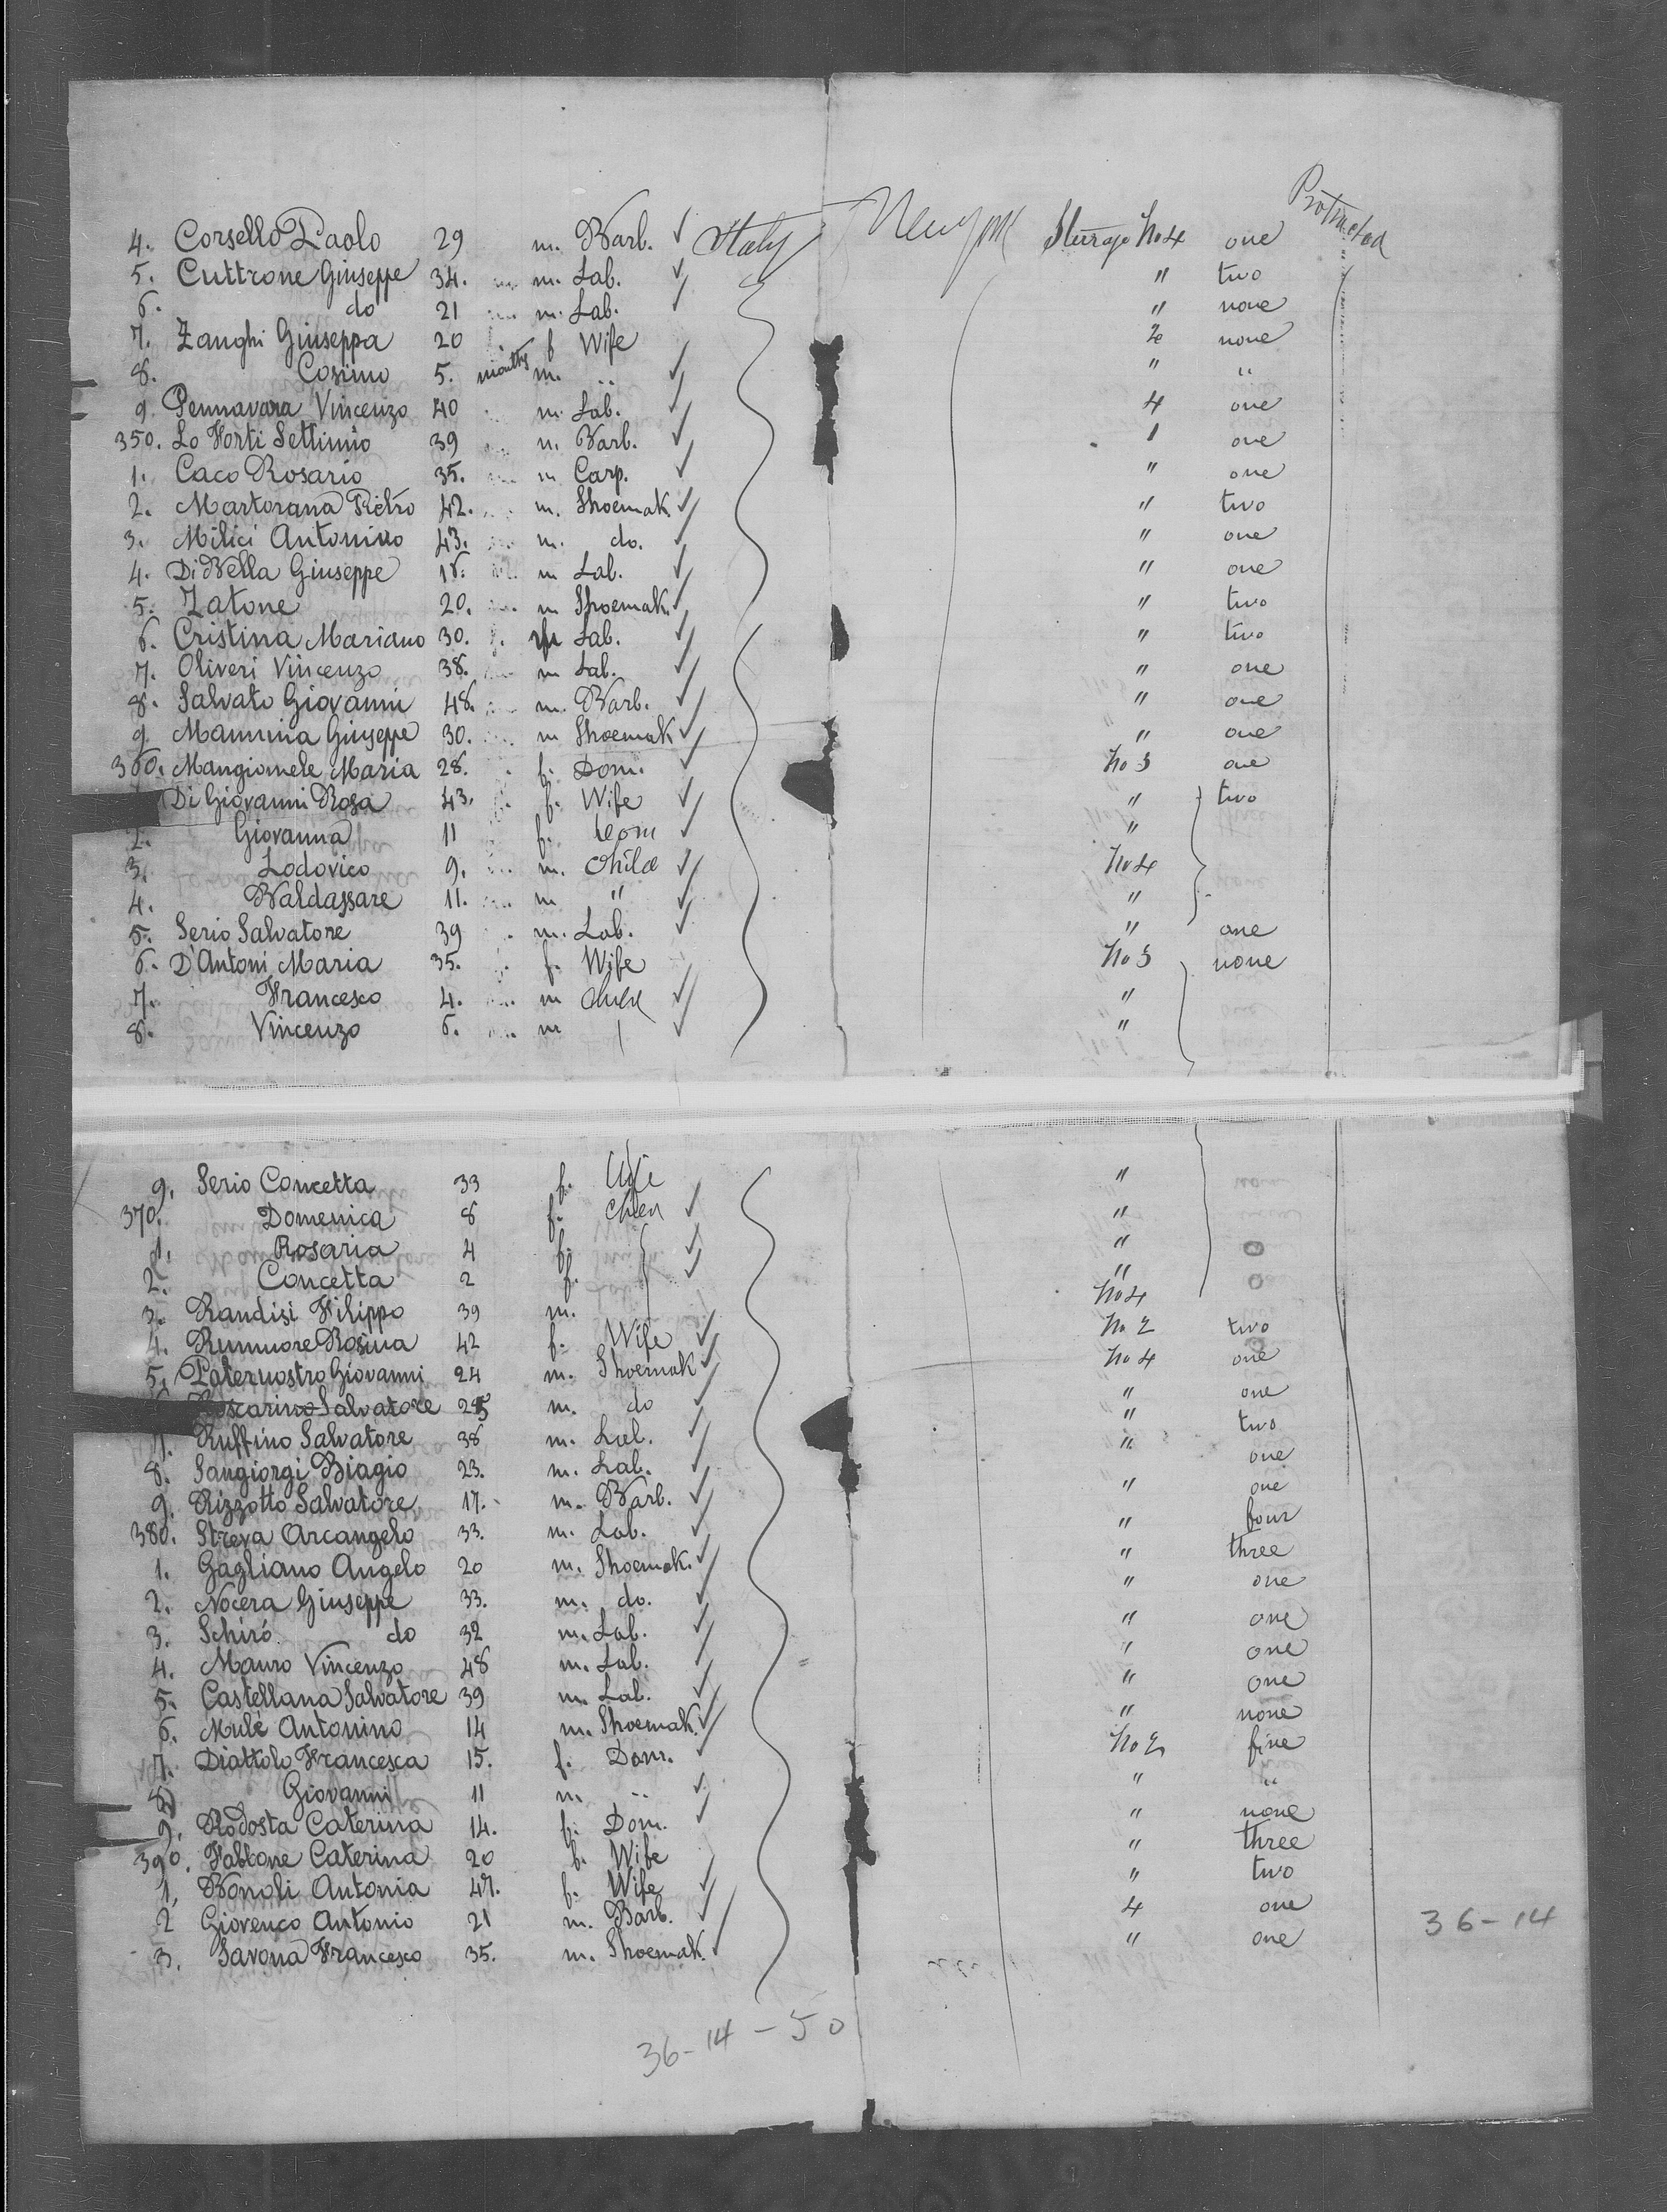 Protracted
4. Corsello Paolo 29 m. Barb. ✓ Italy New York Steerage No 4 one "
5. Cuttrone Giuseppe 34. m. Lab. ✓ " two
6. do 21 m. Lab. ✓ " none
7. Zanghi Giuseppa 20 f Wife 2 none
8. Cosimo 5. months m. .. ✓ " "
9. Pennavara Vincenzo 40 m. Lab. ✓ 4 one
350. Lo Forti Settimio 39 m. Barb. ✓ 1 one
1. Caco Rosario 35. m Carp. ✓ " one
2. Martorana Pietro 42. m. Shoemak. ✓ " two
3. Milici Antonino 43. m. do. ✓ " one
4. Di Bella Giuseppe 18. m Lab. ✓ " one
5. Zatone 20. m Shoemak. ✓ " two
6. Cristina Mariano 30. m Lab. ✓ " two
7. Oliveri Vincenzo 38. m Lab. ✓ " one
8. Salvato Giovanni 48. m. Barb. ✓ " one
9. Mannina Giuseppe 30. m Shoemak ✓ " one
360. Mangiomele Maria 28. f. Dom. ✓ No 3 one
Di Giovanni Rosa 43. f. Wife ✓ " two
2. Giovanna 11 f. ✓ "
3. Lodovico 9. m. Child ✓ No 4
4. Baldassare 11. m " ✓ "
5. Serio Salvatore 39 m. Lab. ✓ " one
6. D'Antoni Maria 35. f. Wife No 3 none
7. Francesco 4. m ✓ "
8. Vincenzo 6. m ✓ "
9. Serio Concetta 33 f. Wife "
370. Domenica 8 f. ✓ "
1. Rosaria 4 f. ✓ " 0
2. Concetta 2 f. ✓ " 0
3. Randisi Filippo 39 m. No 4
4. Rummore Rosina 42 f. Wife ✓ No 2 two
5. Paternostro Giovanni 24 m. Shoemak ✓ No 4 one
Salvatore m. do ✓ " one
7. Ruffino Salvatore 38 m. Lab. ✓ " two
8. Sangiorgi Biagio 23. m. Lab. ✓ " one
9. Rizzotto Salvatore 17. m. Barb. ✓ " one
380. Streva Arcangelo 33. m. Lab. ✓ " four
1. Gagliano Angelo 20 m. Shoemak. ✓ " three
2. Nocera Giuseppe 33. m. do. ✓ " one
3. Schiró do 32 m. Lab. ✓ " one
4. Mauro Vincenzo 48 m. Lab. ✓ " one
5. Castellana Salvatore 39 m. Lab. ✓ " one
6. Mulè Antonino 14 m. Shoemak. ✓ " none
7. Diattolo Francesca 15. f. Dom. ✓ No 2 five
8. Giovanni 11 m .. ✓ " "
9. Rodosta Caterina 14. f. Dom. ✓ " none
390. Fabbone Caterina 20 f. Wife " three
1. Bonoli Antonia 47. f. Wife ✓ " two
2 Giovenco Antonio 21 m. Barb. ✓ 4 one
3. Savona Francesco 35. m. Shoemak. ✓ " one
36-14
36-14-50